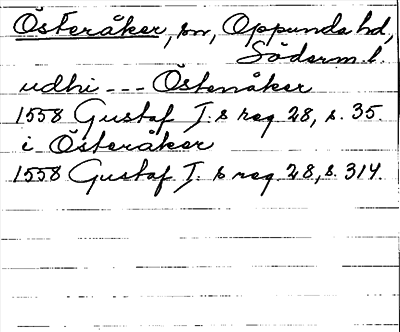 Österåker, sn, Oppunda hd,
Söderm. l.
udhi --- Östenåker
1558 Gustaf I:s reg. 28, s. 35.
i Österåker
1558 Gustaf I:s reg. 28, s. 314.